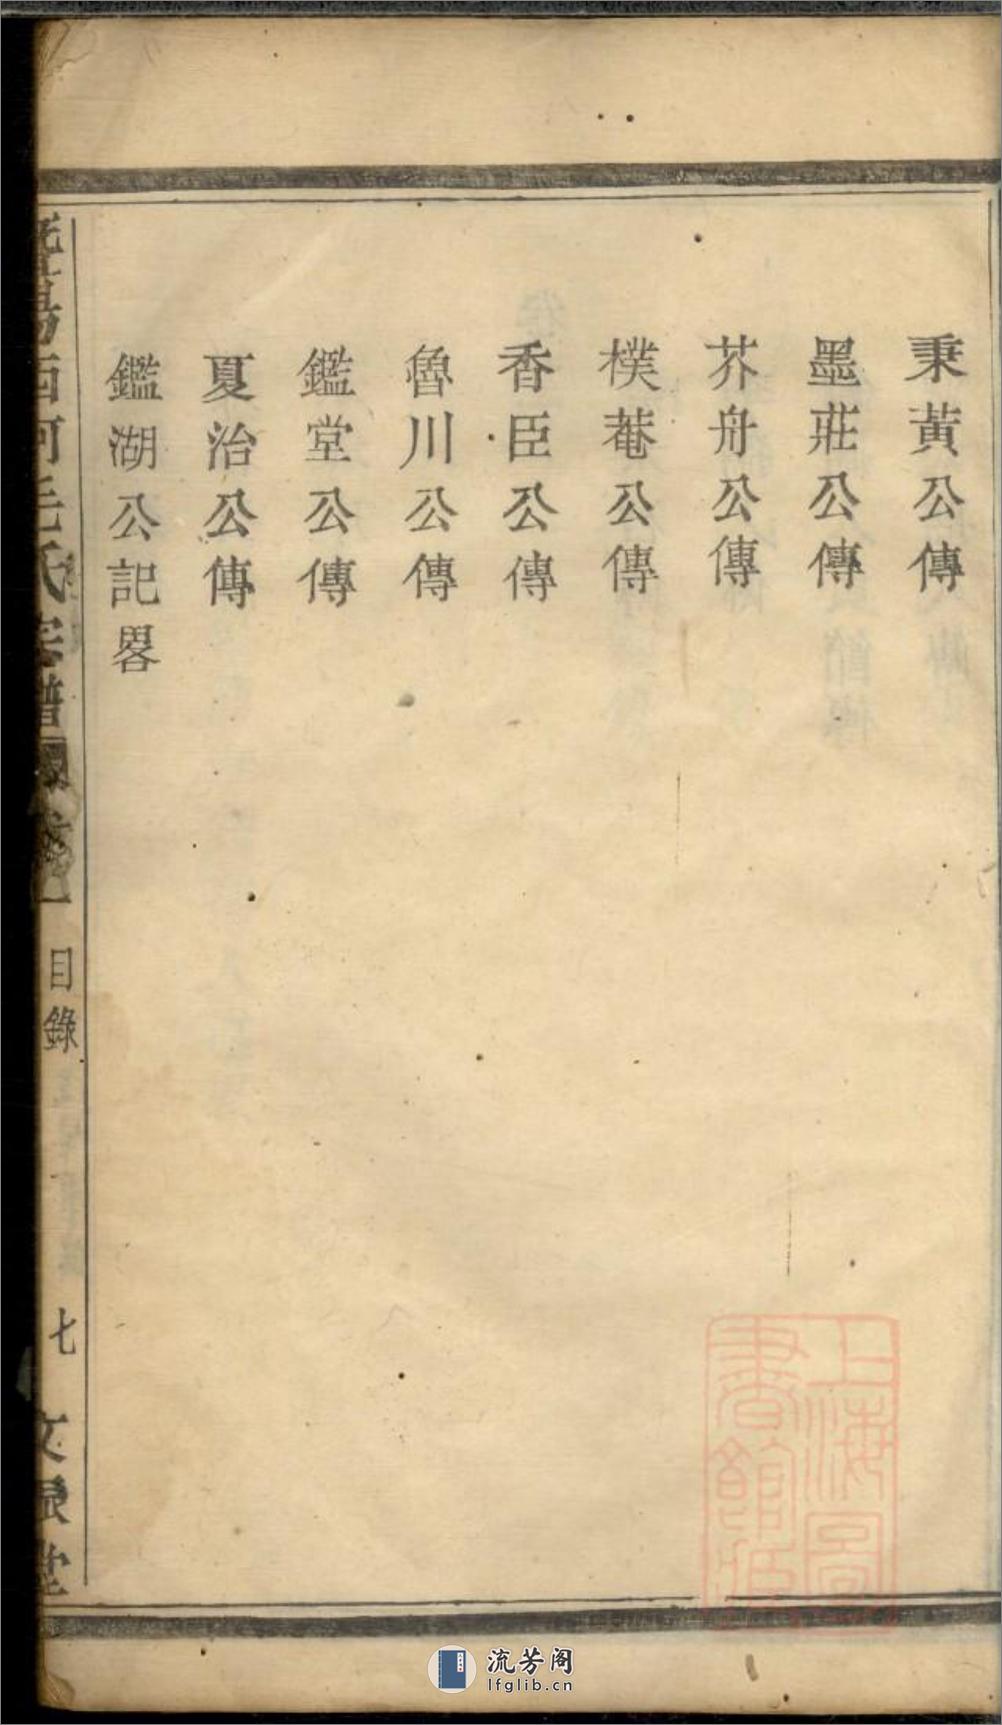 秉黃公傳
墨莊公傳
芥舟公傳
樸菴公傳
香臣公傳
魯川公傳
鑑堂公傳
夏治公傳
鑑湖公記畧
暨陽西河毛氏宗譜
目錄
七
上海圖書館藏
流芳阁
lfglib.cn